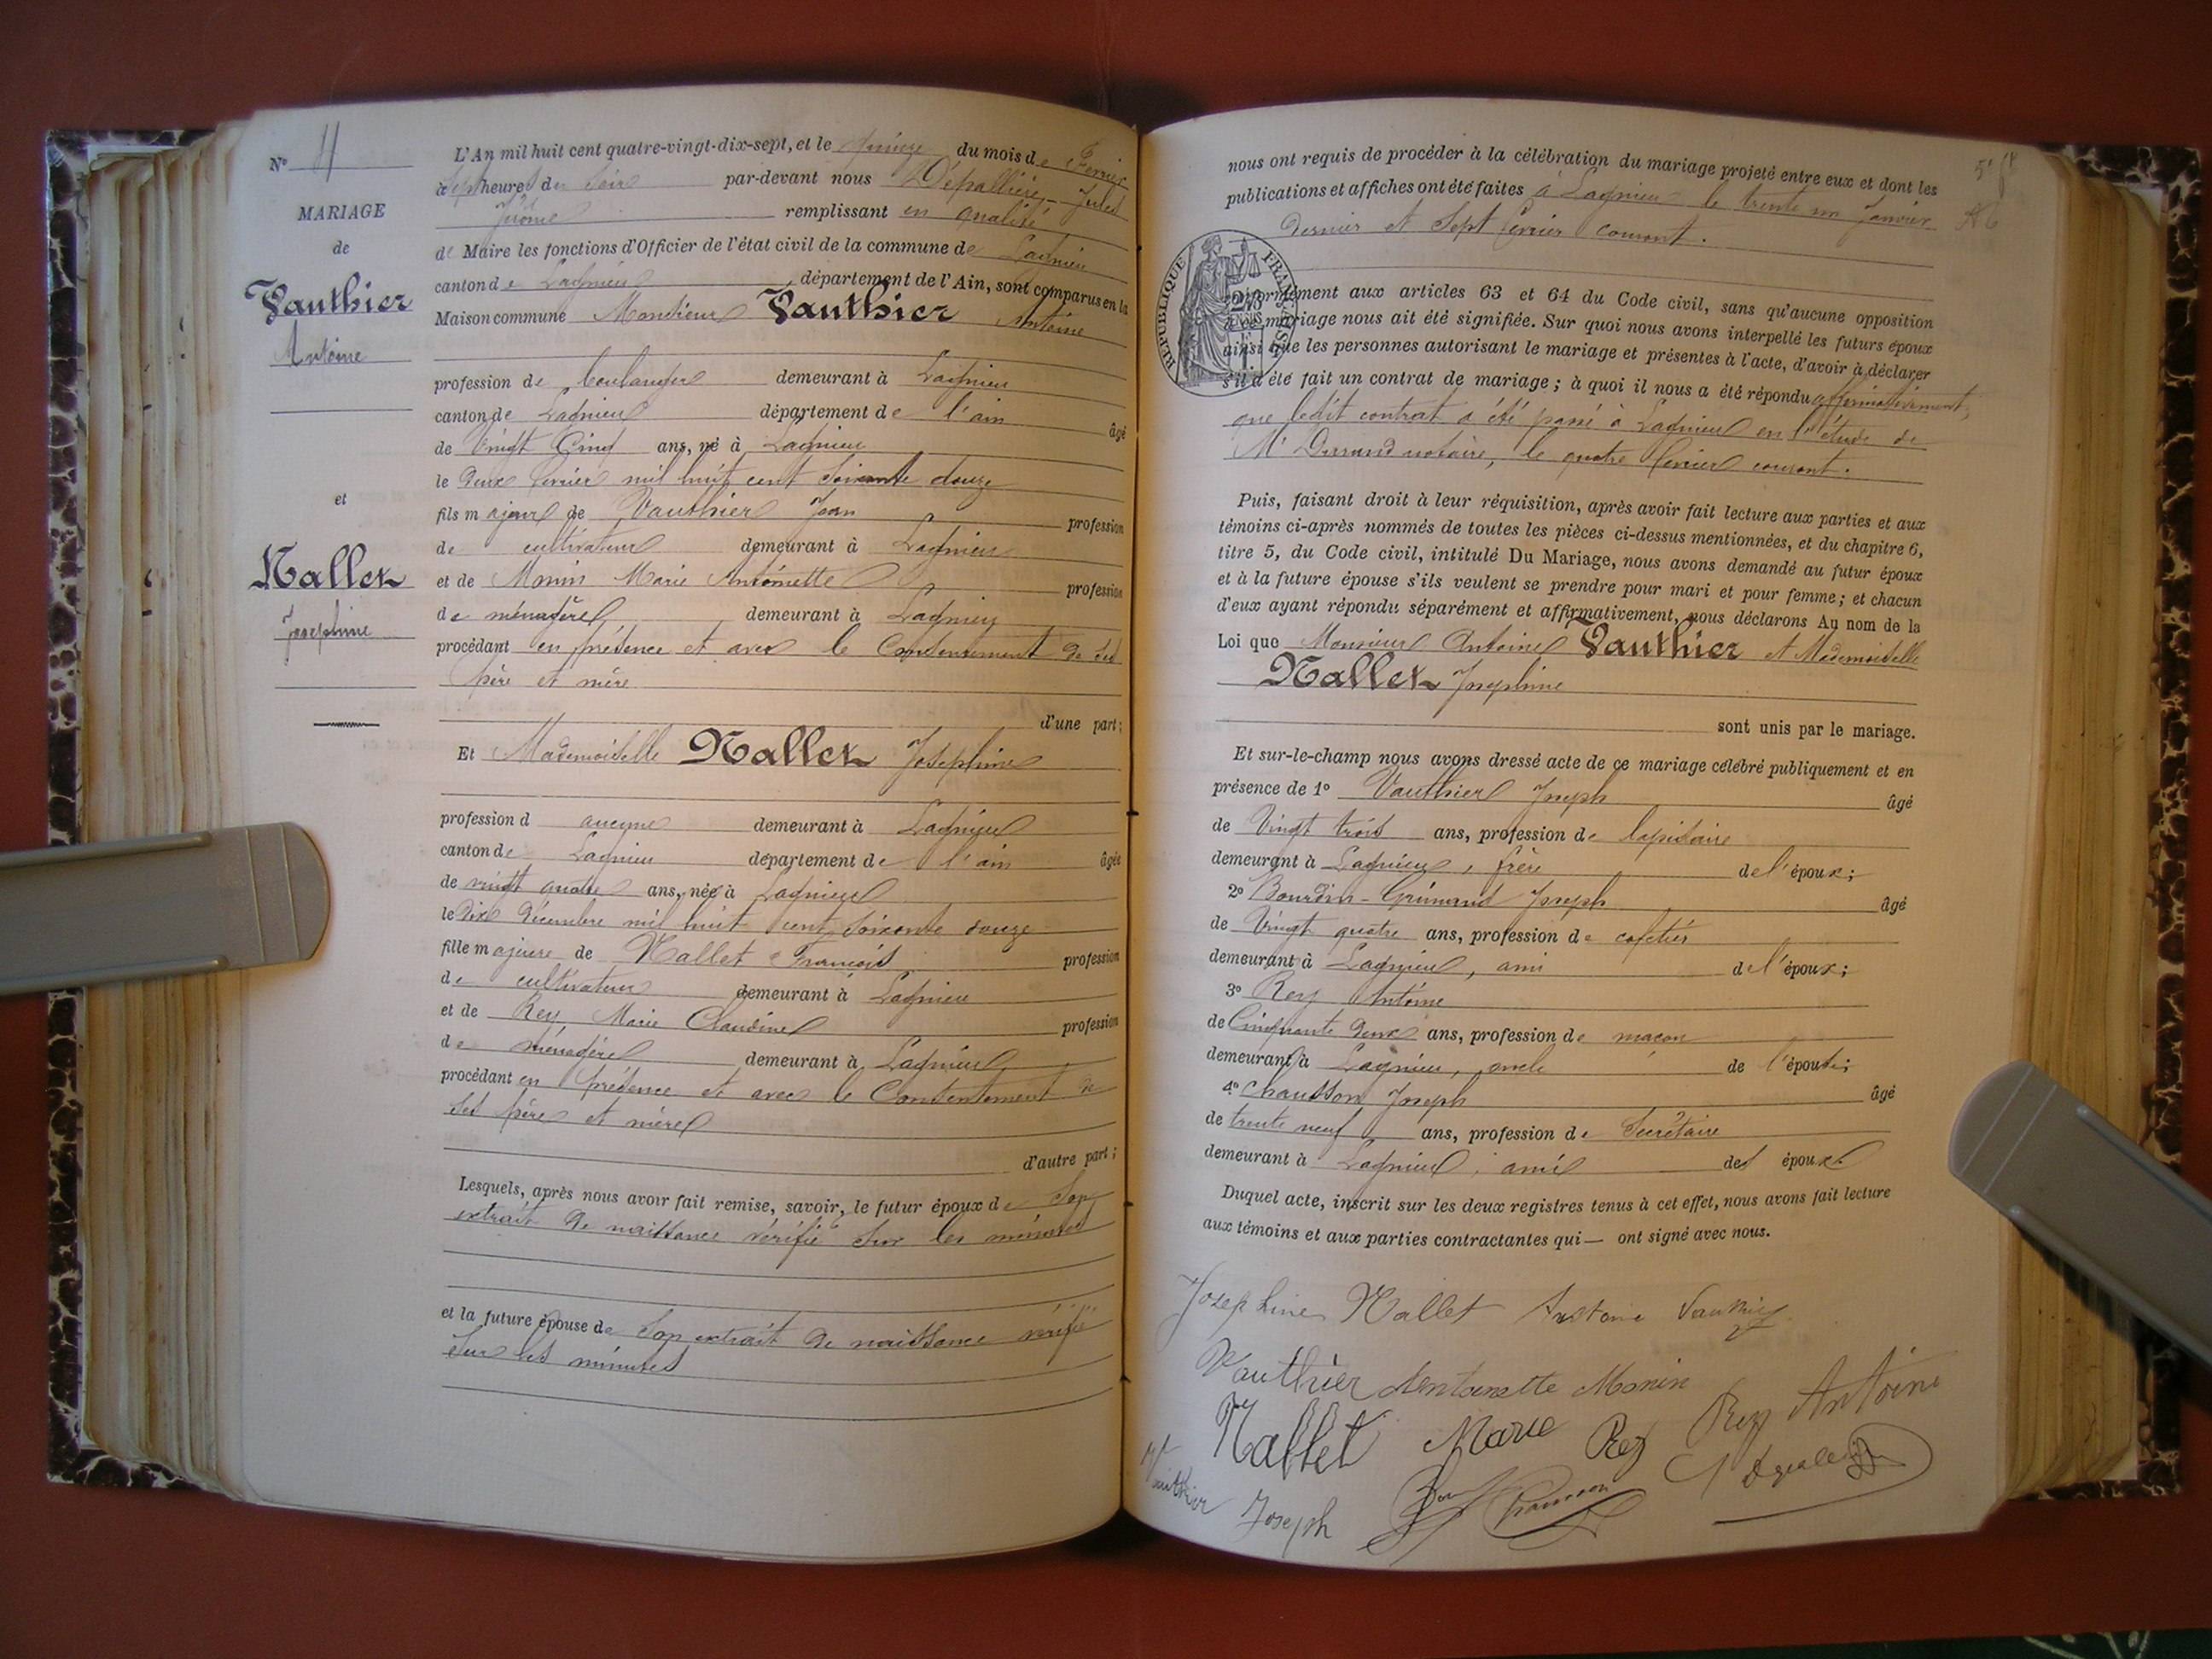 N° 11
MARIAGE
de
Vauthier
Antoine
et
Nallet
Josephine
L'An mil huit cent quatre-vingt-dix-sept, et le quinze du mois de Février
à Sept heures du Soir par-devant nous Dépallière Jules
Jérôme remplissant en qualité
de Maire les fonctions d'Officier de l'état civil de la commune de Lagnieu
canton de Lagnieu département de l'Ain, sont comparus en la
Maison commune Monsieur Vauthier Antoine
profession de boulanger demeurant à Lagnieu
canton de Lagnieu département de l'ain âgé
de Vingt Cinq ans, né à Lagnieu
le deux février mil huit cent soixante douze
fils majeur de Vauthier Jean profession
de cultivateur demeurant à Lagnieu
et de Monin Marie Antoinette profession
de ménagère demeurant à Lagnieu
procédant en présence et avec le Consentement de ses
père et mère
d'une part;
Et Mademoiselle Nallet Joséphine
profession d aucune demeurant à Lagnieu
canton de Lagnieu département de l'ain âgée
de vingt quatre ans, née à Lagnieu
le Dix Décembre mil huit cent soixante douze
fille majeure de Nallet François profession
de cultivateur demeurant à Lagnieu
et de Rey Marie Claudine profession
de ménagère demeurant à Lagnieu
procédant en présence et avec le Consentement de
ses père et mère
d'autre part;
Lesquels, après nous avoir fait remise, savoir, le futur époux de Son
extrait de naissance vérifié sur les minutes
et la future épouse de Son extrait de naissance vérifié
sur les minutes
5e
nous ont requis de procéder à la célébration du mariage projeté entre eux et dont les
publications et affiches ont été faites à Lagnieu le trente un Janvier
dernier et Sept février courant.
RÉPUBLIQUE FRANÇAISE
conformément aux articles 63 et 64 du Code civil, sans qu'aucune opposition
à ce mariage nous ait été signifiée. Sur quoi nous avons interpellé les futurs époux
ainsi que les personnes autorisant le mariage et présentes à l'acte, d'avoir à déclarer
s'il a été fait un contrat de mariage; à quoi il nous a été répondu affirmativement,
que ledit contrat a été passé à Lagnieu en l'étude de
Me Durand notaire, le quatre février courant.
Puis, faisant droit à leur réquisition, après avoir fait lecture aux parties et aux
témoins ci-après nommés de toutes les pièces ci-dessus mentionnées, et du chapitre 6,
titre 5, du Code civil, intitulé Du Mariage, nous avons demandé au futur époux
et à la future épouse s'ils veulent se prendre pour mari et pour femme; et chacun
d'eux ayant répondu séparément et affirmativement, nous déclarons Au nom de la
Loi que Monsieur Antoine Vauthier et Mademoiselle
Nallet Josephine
sont unis par le mariage.
Et sur-le-champ nous avons dressé acte de ce mariage célébré publiquement et en
présence de 1° Vauthier Joseph âgé
de Vingt trois ans, profession de lapidaire
demeurant à Lagnieu, frère de l'époux;
2° Bourdin-Grimaud Joseph âgé
de Vingt quatre ans, profession de cafetier
demeurant à Lagnieu, ami de l'époux;
3° Rey Antoine
de Cinquante deux ans, profession de maçon
demeurant à Lagnieu, oncle de l'épouse;
4° Chausson Joseph âgé
de trente neuf ans, profession de Secrétaire
demeurant à Lagnieu, ami des époux.
Duquel acte, inscrit sur les deux registres tenus à cet effet, nous avons fait lecture
aux témoins et aux parties contractantes qui — ont signé avec nous.
Josephine Nallet Antoine Vauthier
Vauthier Antoinette Monin
Nallet Marie Rey Rey Antoine
Vauthier Joseph Chausson